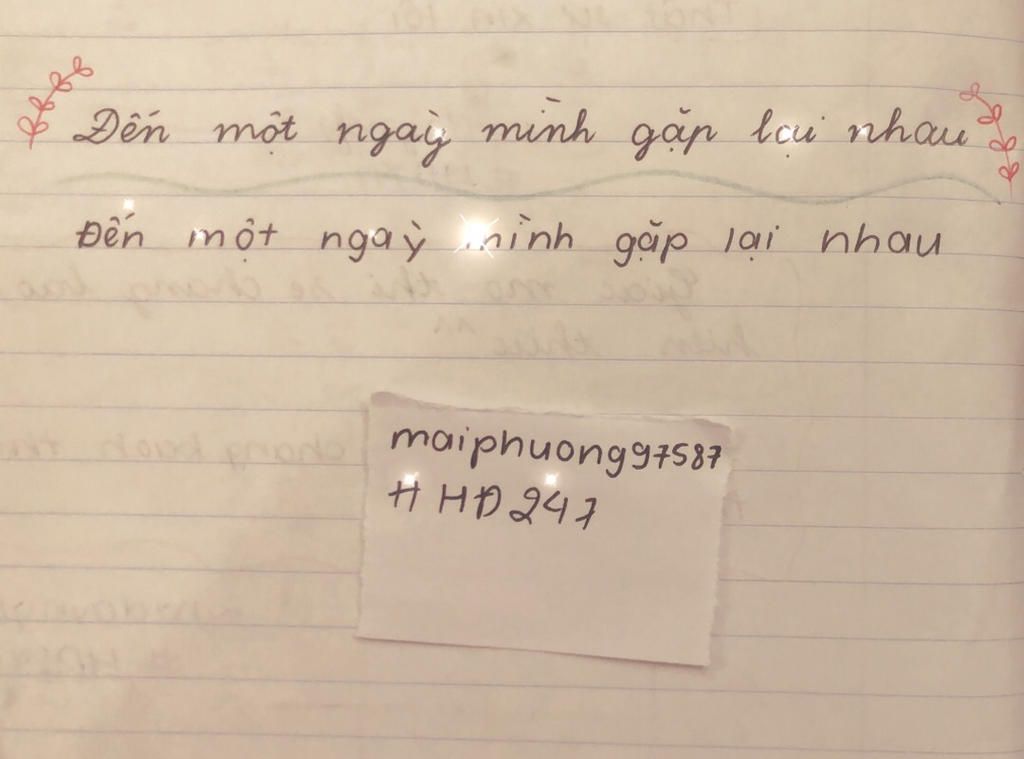 Đến một ngày mình gặp lại nhau
Đến một ngày mình gặp lại nhau
maiphuong97587
# HD247